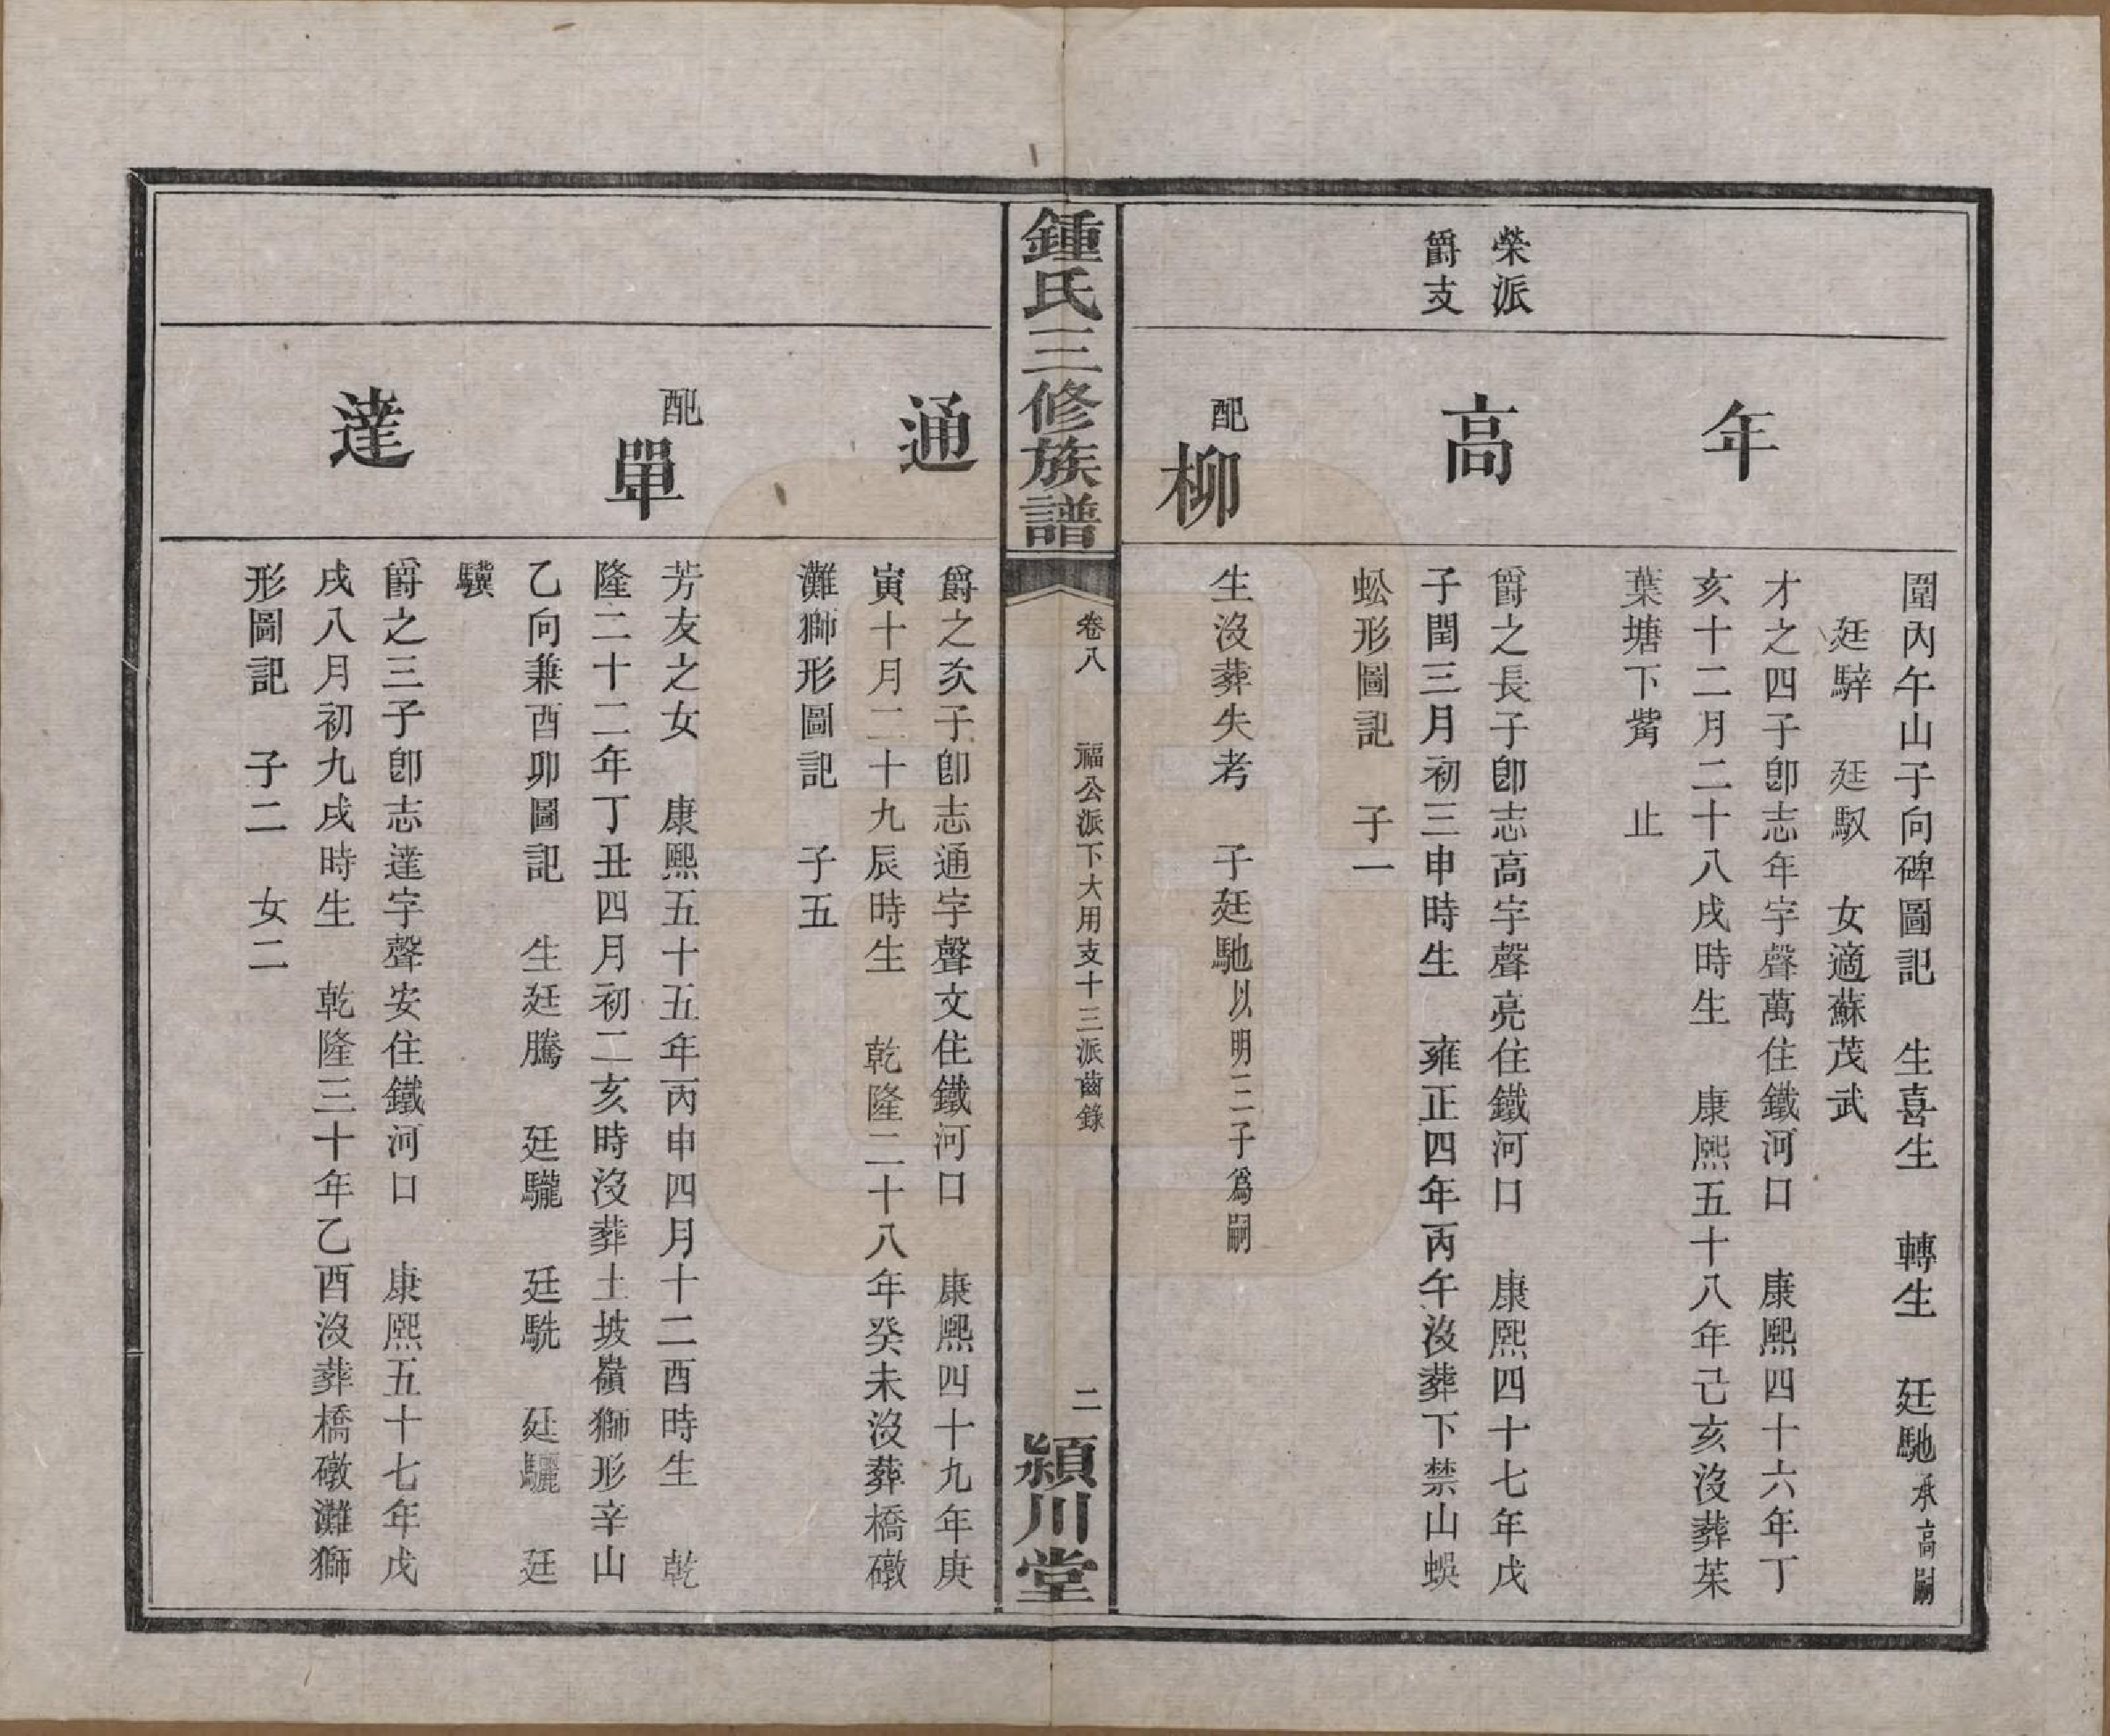 榮派
爵支
圍內午山子向碑圖記　生喜生　轉生　廷馳承高嗣
廷騂　廷馭　女適蘇茂武
年
才之四子卽志年字聲萬住鐵河口　康熙四十六年丁
亥十二月二十八戌時生　康熙五十八年己亥沒葬茱
葉塘下觜　止
高
爵之長子卽志高字聲亮住鐵河口　康熙四十七年戊
子閏三月初三申時生　雍正四年丙午沒葬下禁山蜈
蚣形圖記　子一
配柳
生沒葬失考　子廷馳以明三子爲嗣
鍾氏三修族譜
卷八　福公派下大用支十三派齒錄　二
潁川堂
通
爵之次子卽志通字聲文住鐵河口　康熙四十九年庚
寅十月二十九辰時生　乾隆二十八年癸未沒葬橋礅
灘獅形圖記　子五
配單
芳友之女　康熙五十五年丙申四月十二酉時生　乾
隆二十二年丁丑四月初二亥時沒葬土坡嶺獅形辛山
乙向兼酉卯圖記　生廷騰　廷驡　廷駪　廷驪　廷
驥
達
爵之三子卽志達字聲安住鐵河口　康熙五十七年戊
戌八月初九戌時生　乾隆三十年乙酉沒葬橋礅灘獅
形圖記　子二　女二